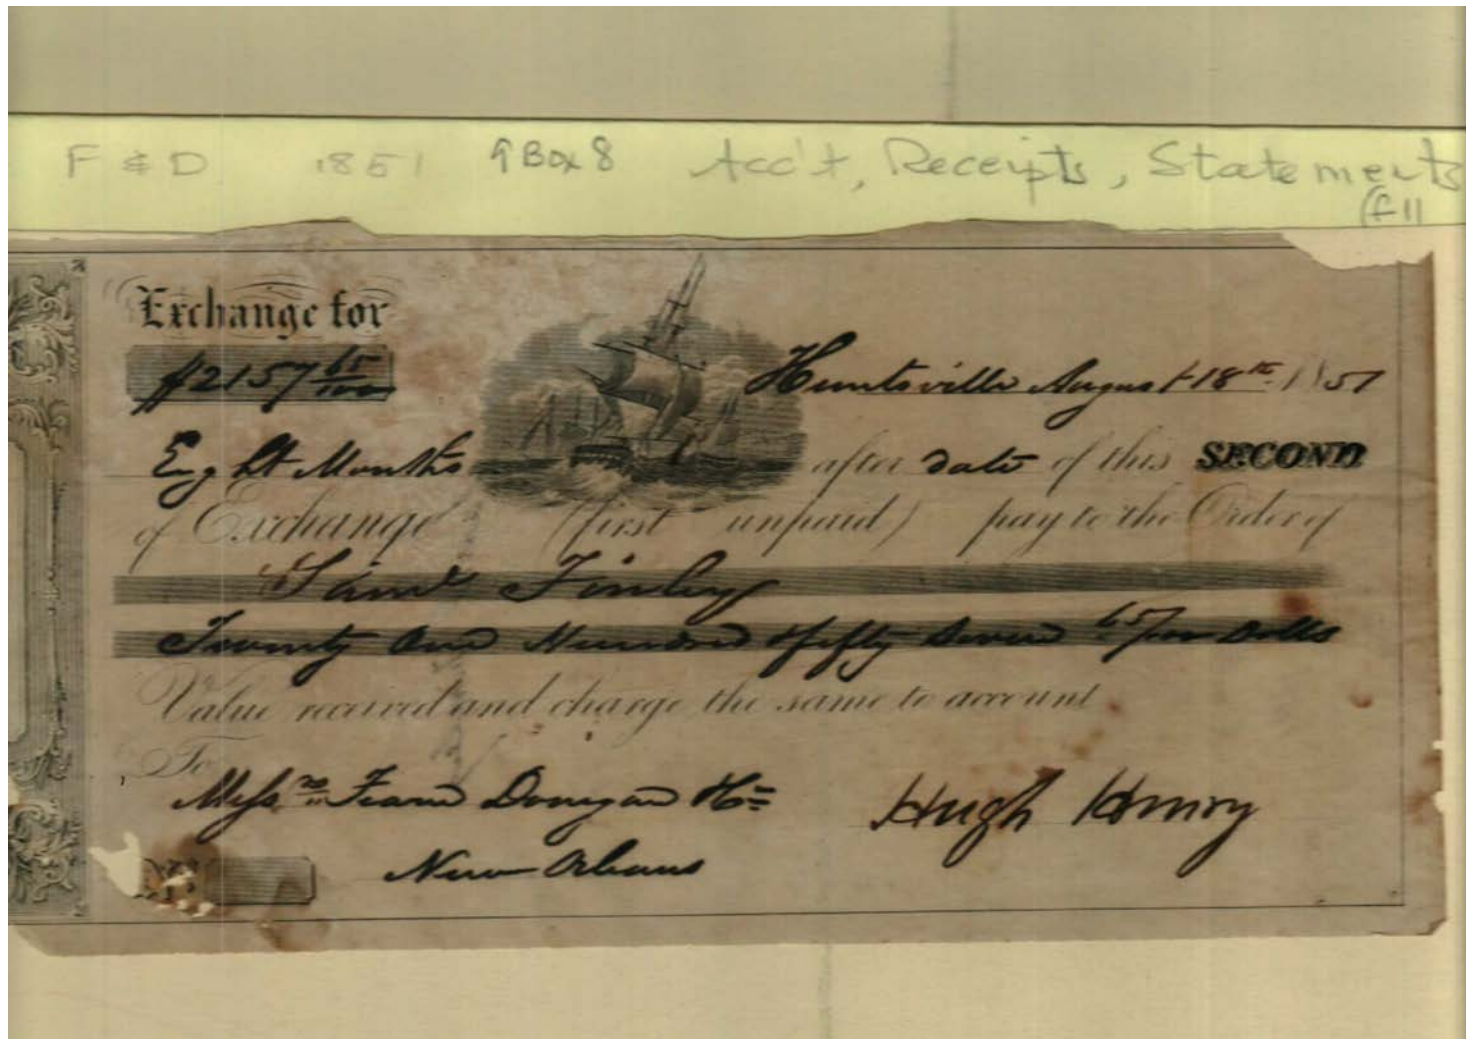 F & D 1851 9 Box 8 Acc't, Receipts, Statements
(f 11
Exchange for
$2157 65/100
Huntsville August 18th 1851
Eight Months after date of this SECOND
of Exchange (first unpaid) pay to the Order of
Saml Finley
Twenty One Hundred & fifty Seven 65/100 Dolls
Value received and charge the same to account
To
Messrs Fearn Donegan & Co
New Orleans
Hugh Henry